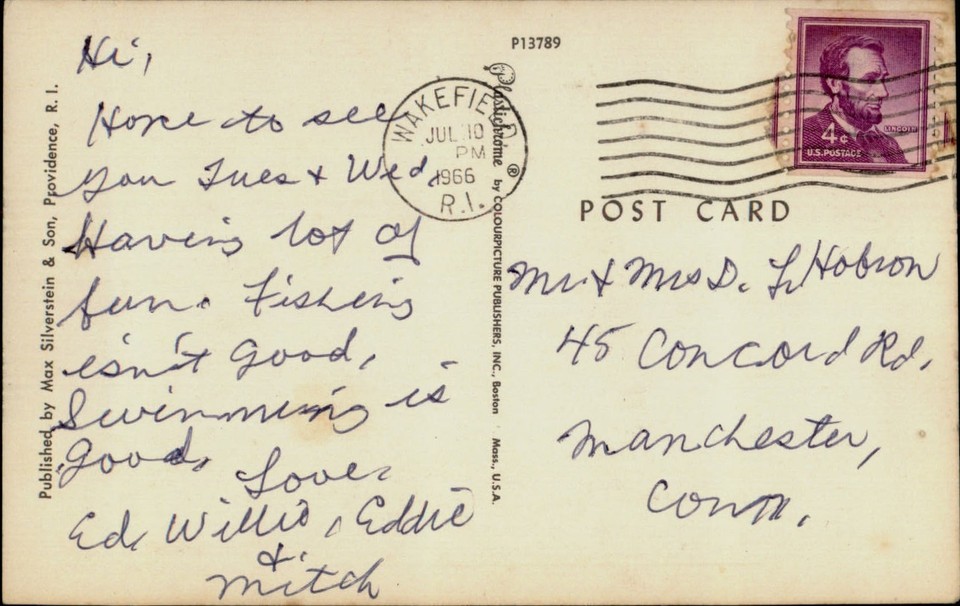 Hi,
Hope to see
you Tues + Wed,
Having lot of
fun. Fishing
isn't good,
Swimming is
good.
Love,
Ed, Willis, Eddie
&
Mitch
Published by Max Silverstein & Son, Providence, R. I.
P13789
Plastichrome ® by COLOURPICTURE PUBLISHERS, INC., Boston Mass., U.S.A.
WAKEFIELD
JUL 10
PM
1966
R.I.
LINCOLN
4¢
U.S. POSTAGE
POST CARD
Mr + Mrs D. L. Hobron
45 Concord Rd.
Manchester,
Conn.